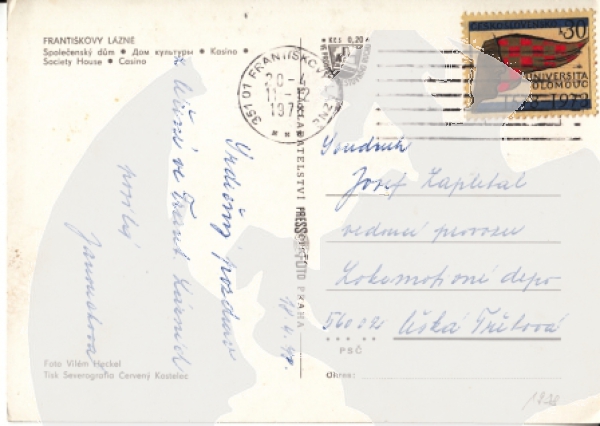 FRANTIŠKOVY LÁZNĚ
Společenský dům ● Дом культуры ● Kasino ●
Society House ● Casino
Srdečný pozdrav
z léčení ve Frant. Lázních
posílá
Janouchova
Foto Vilém Heckel
Tisk Severografia Červený Kostelec
NAKLADATELSTVÍ PRESSFOTO PRAHA
Kčs 0,20
351 01 FRANTIŠKOVY LÁZNĚ
20-4
11-12
ČESKOSLOVENSKO 30
UNIVERSITA
OLOMOUC
1573-1973
Soudruh
Josef Zapletal
vedoucí provozu
Lokomotivní depo
560 02 Česká Třebová
PSČ
Okres: